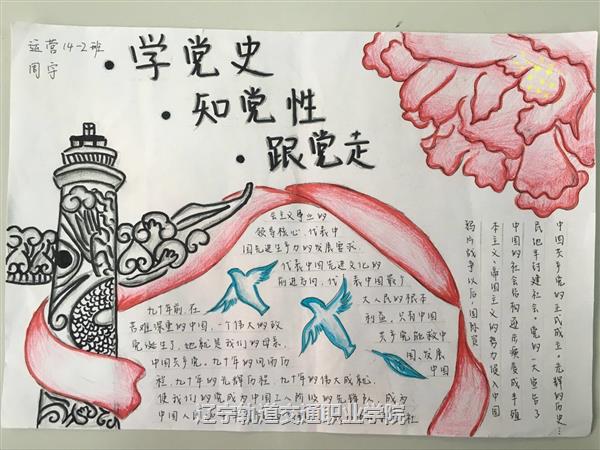 运营14-2班
周宇
·学党史
·知党性
·跟党走
会主义事业的
领导核心,代表中
国先进生产力的发展要求,
代表中国先进文化的
前进方向,代表中国最广
大人民的根本
利益,只有中国
共产党能救中
国、发展
中国
九十年前,在
苦难深重的中国,一个伟大的政
党诞生了,她就是我们的母亲,
中国共产党。九十年的风雨历
程,九十年的光辉历程,九十年的伟大成就,
使我们的党成为中国工人阶级的先锋队,成为
中国人民
社
中国共产党的正式成立,光辉的历史…
民地半封建社会。党的一大宣告了
中国的社会结构逐步演变成半殖
本主义、帝国主义的势力侵入中国
鸦片战争以后,国际资
辽宁轨道交通职业学院